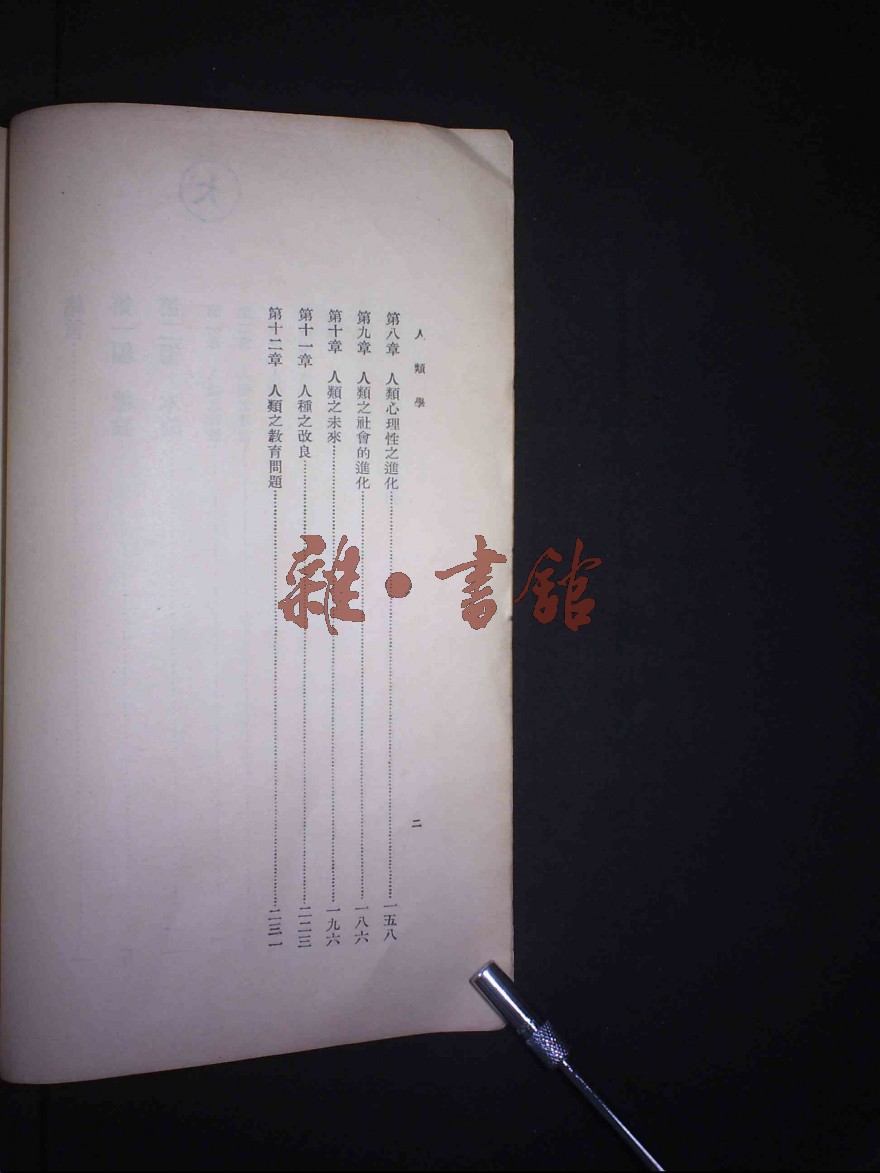 人類學
二
第八章　人類心理性之進化…………一五八
第九章　人類之社會的進化…………一八六
第十章　人類之未來…………一九六
第十一章　人種之改良…………二二三
第十二章　人類之教育問題…………二三一
雜·書館